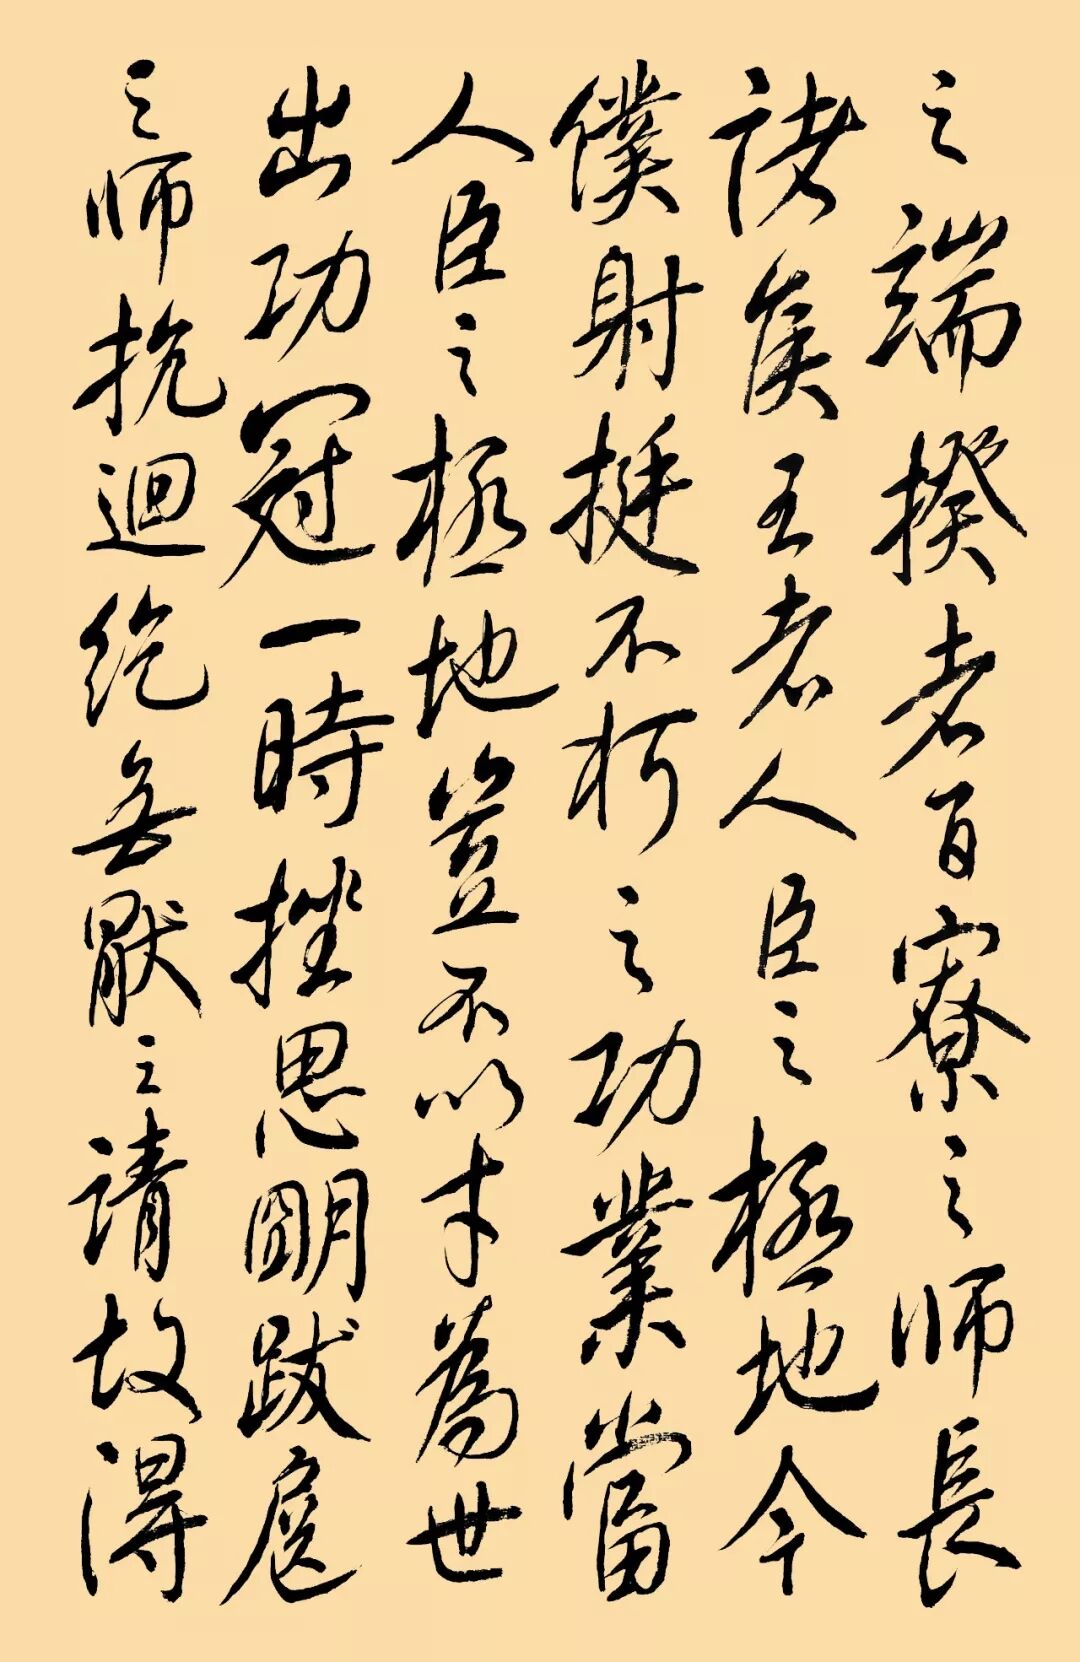 之端揆者百寮之师長
诸矦王者人臣之極地今
僕射挺不朽之功業當
人臣之極地豈不以才為世
出功冠一時挫思明跋扈
之师抗迴纥無厭之請故得